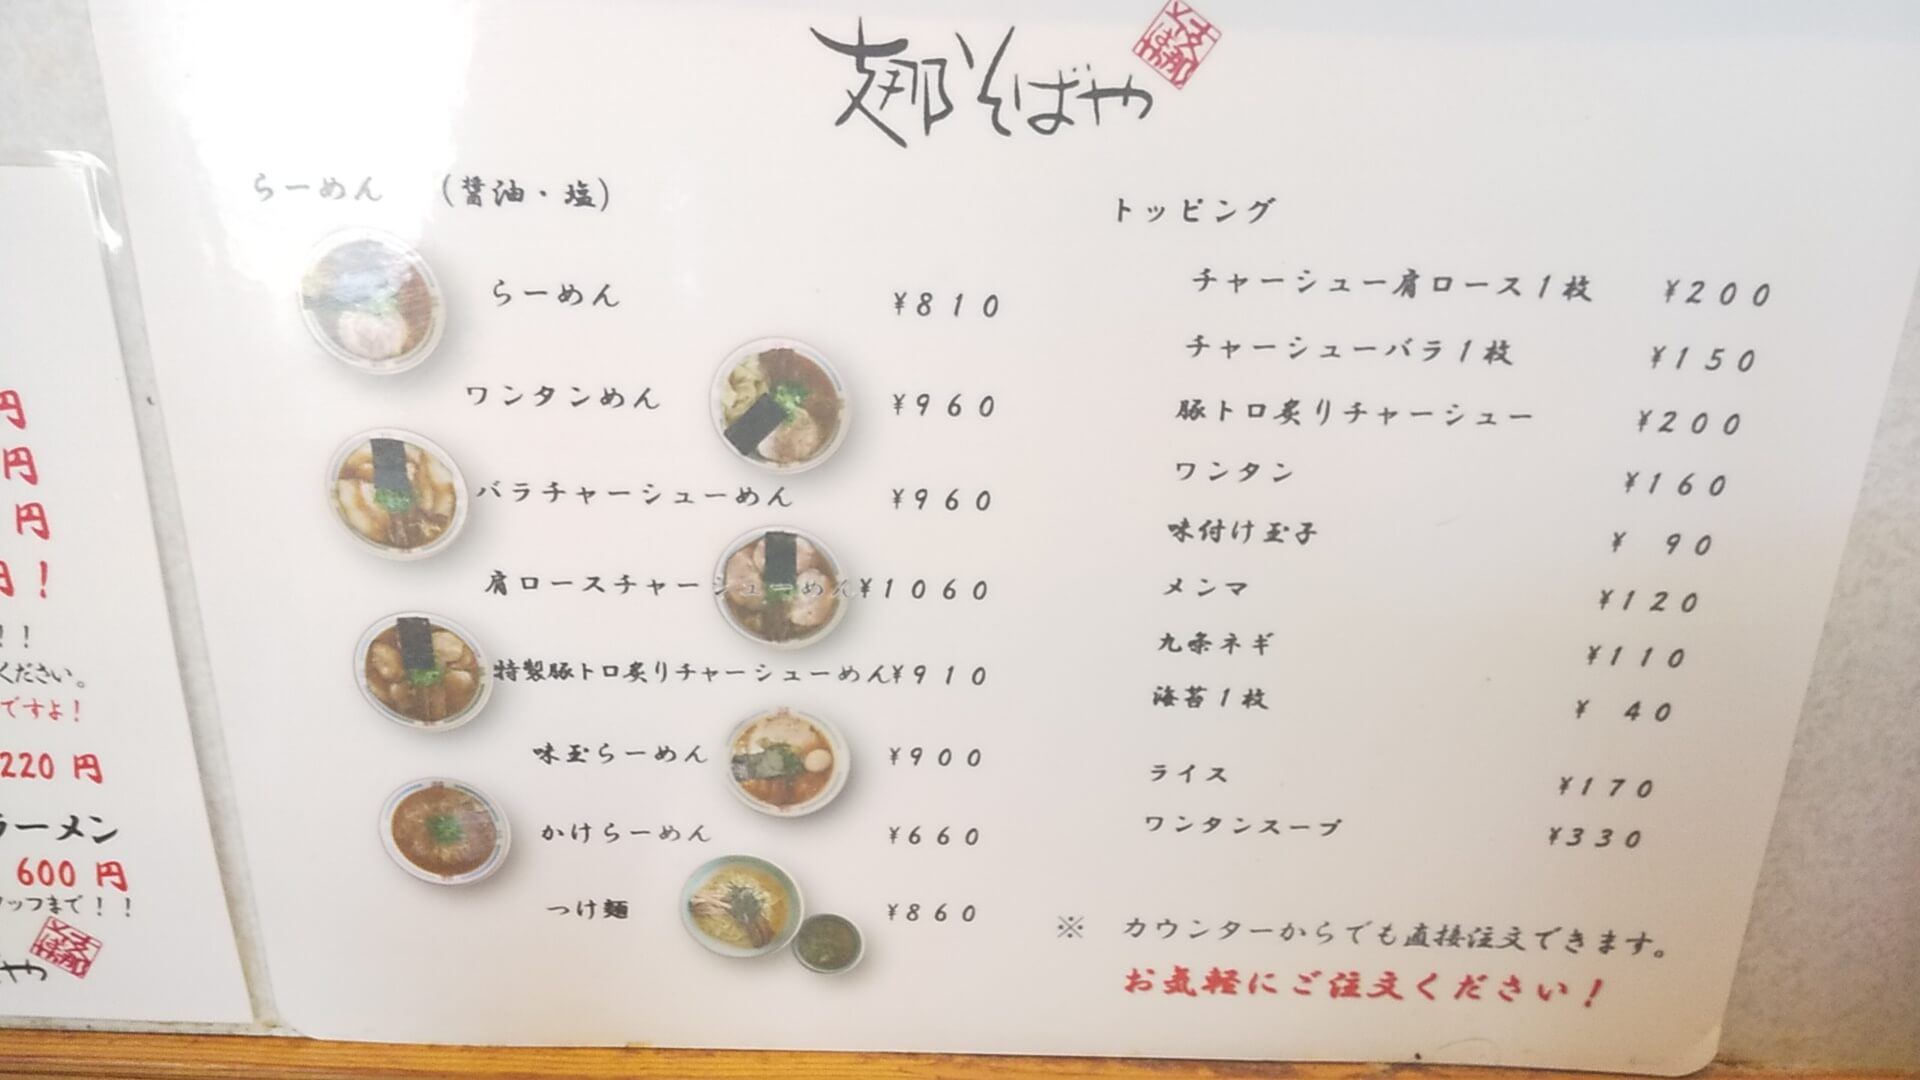 支那そばや
らーめん （醤油・塩）
らーめん ¥810
ワンタンめん ¥960
バラチャーシューめん ¥960
肩ロースチャーシューめん¥1060
特製豚トロ炙りチャーシューめん¥910
味玉らーめん ¥900
かけらーめん ¥660
つけ麺 ¥860
トッピング
チャーシュー肩ロース1枚 ¥200
チャーシューバラ1枚 ¥150
豚トロ炙りチャーシュー ¥200
ワンタン ¥160
味付け玉子 ¥ 90
メンマ ¥120
九条ネギ ¥110
海苔1枚 ¥ 40
ライス ¥170
ワンタンスープ ¥330
※ カウンターからでも直接注文できます。
お気軽にご注文ください！
円
円
円
円！
！！
ください。
ですよ！
220 円
ラーメン
600 円
ップまで！！
ばや